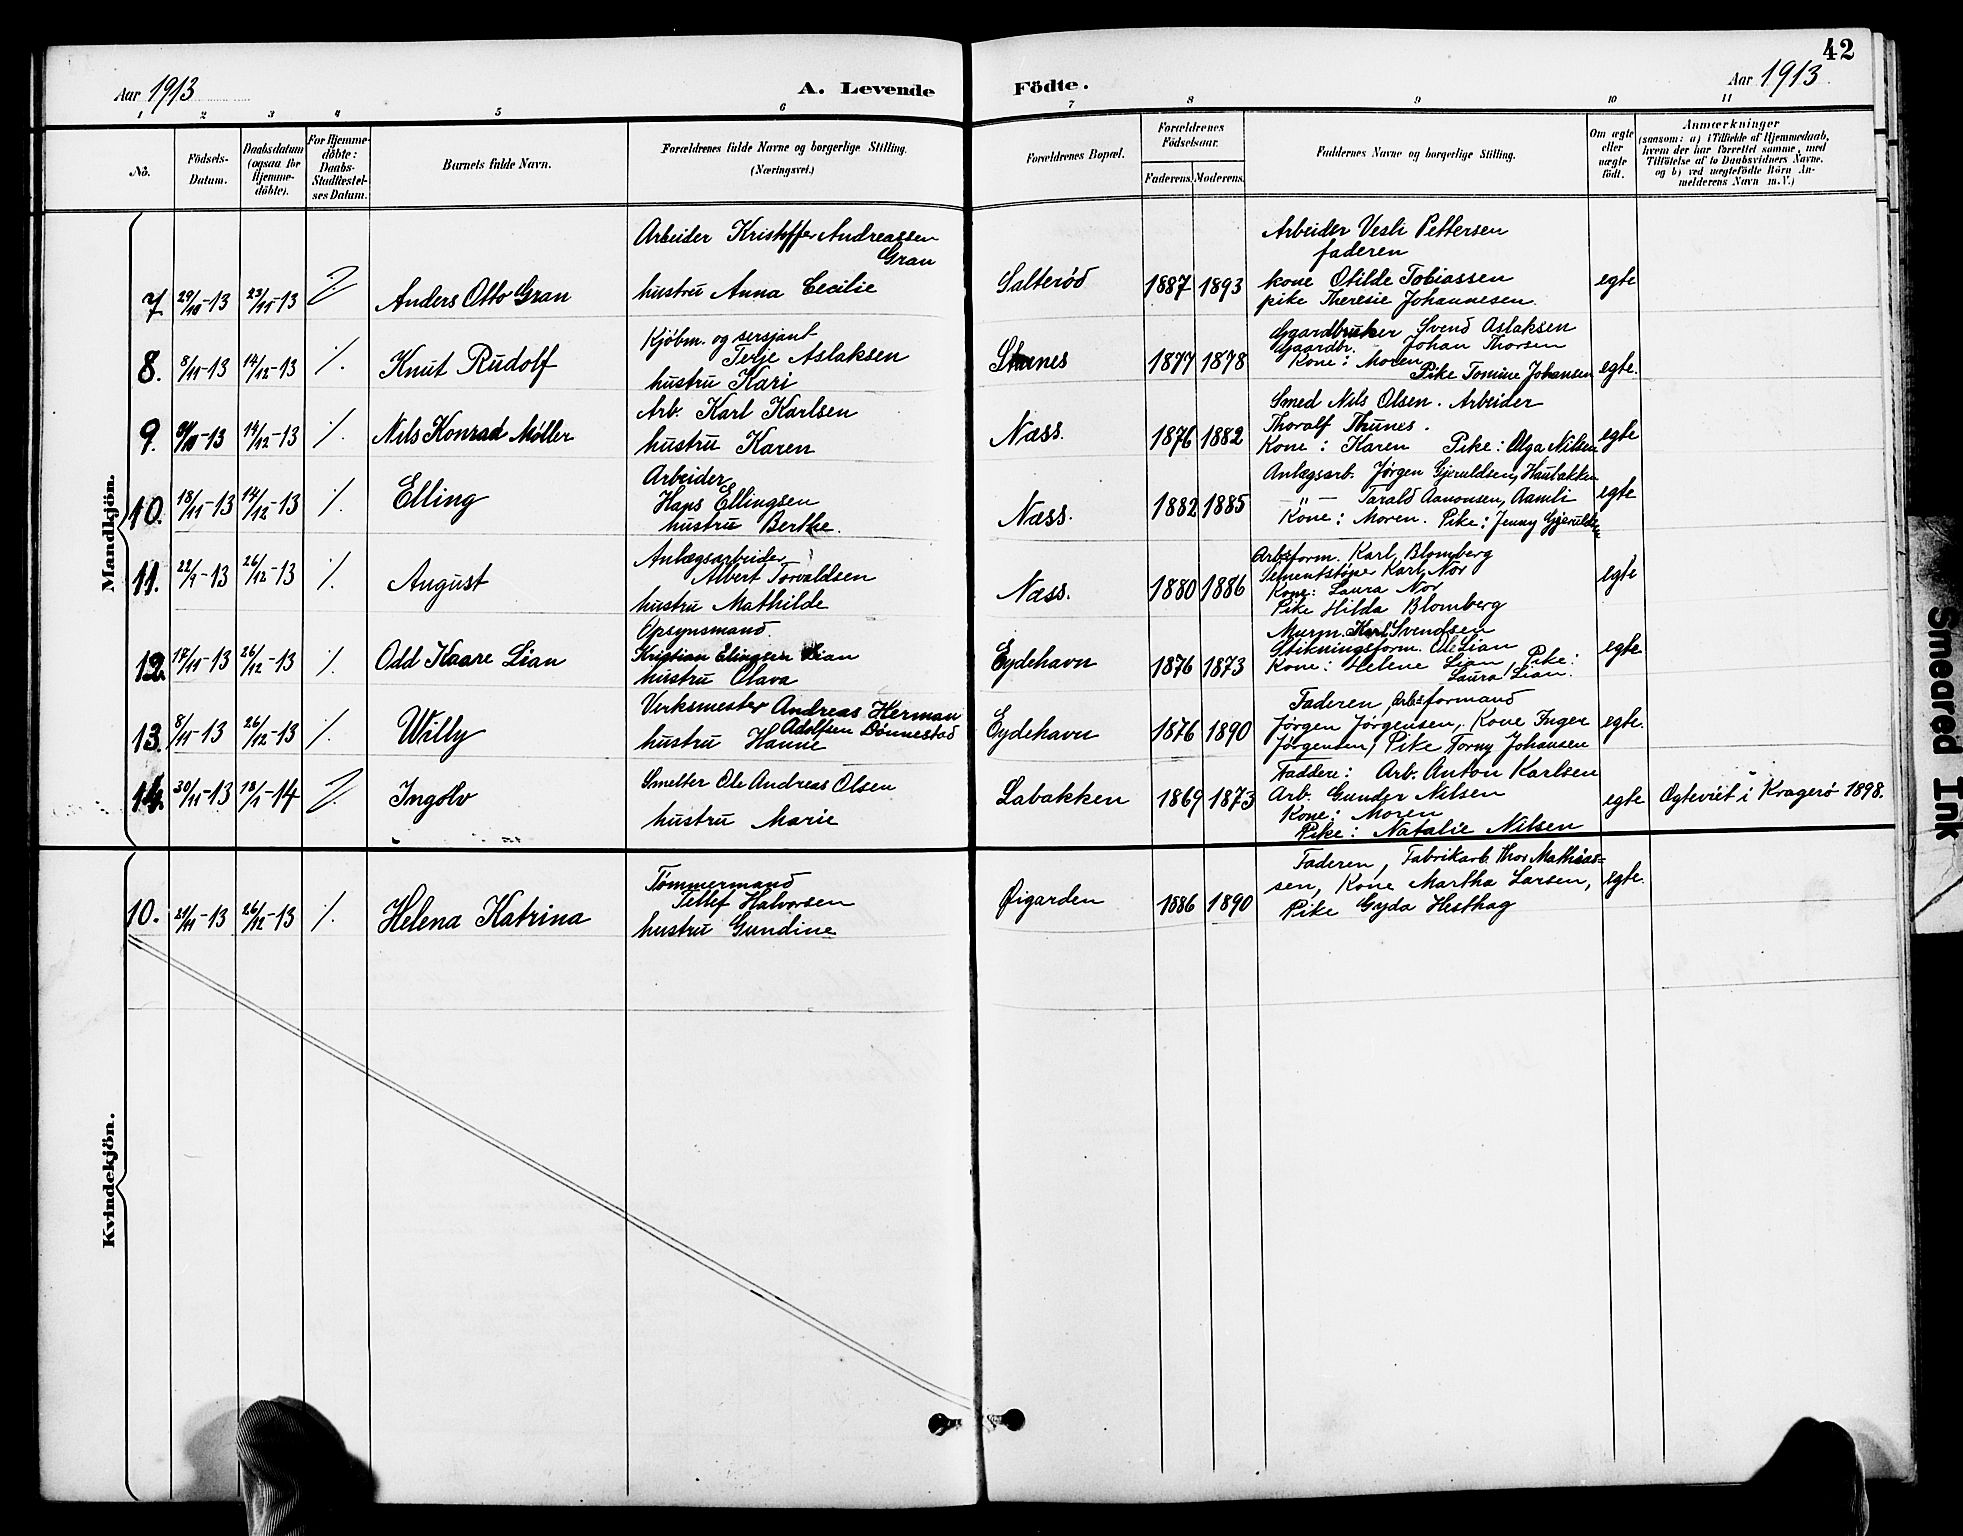 42
Aar 1913 A. Levende Födte. Aar 1913.
1 2 3 4 5 6 7 8 9 10 11
No.
Födsels-Datum.
Daabsdatum (ogsaa for Hjemmedöbte).
For Hjemmedöbte: Daabs-Stadfestelses Datum.
Barnets fulde Navn.
Forældrenes fulde Navne og borgerlige Stilling. (Næringsvei.)
Forældrenes Bopæl.
Forældrenes Födselsaar.
Faderens. Moderens.
Faddernes Navne og borgerlige Stilling.
Om ægte eller uægte födt.
Anmærkninger
(saasom: a) i Tilfælde af Hjemmedaab, hvem der har forrettet samme, med Tilföielse af to Daabsvidners Navne. og b) ved uægtefödte Börn Anmelderens Navn m.V.)
Mandkjön.
7 29/10-13 23/11-13 Anders Otto Gran
Arbeider Kristoffer Andreassen
Gran
hustru Anna Cecilie
Salterød 1887 1893
Arbeider Pettersen
faderen
kone Otilde Tobiassen
pike Theresie Johannesen.
egte
8. 8/11-13 14/12-13 ./. Knut Rudolf
Kjøbm. og sersjant
Terje Aslaksen
hustru Kari
1877 1878
Gaardbruker Svend Aslaksen
Gaardbr. Johan Thorsen
Kone: Moren
Pike Tomine Johansen
egte.
9. 14/12-13 ./. Nils Konrad Møller
Arb. Karl Karlsen
hustru Karen
Næss. 1876 1882
Smed Nils Olsen. Arbeider
Thoralf Thunes.
Kone: Karen Pike: Olga Nilsen
egte
10. 18/11-13 14/12-13 ./. Elling
Arbeider
Hans Ellingsen
hustru Berthe.
Næss. 1882 1885
Anlægsarb. Jørgen Gjeruldsen, Haubakken
—„— Tarald Aanonsen, Aamli
Kone: Moren. Pike: Jenny
egte
11. 22/9-13 26/12-13 ./. August
Anlægsarbeider
Albert Torvaldsen
hustru Mathilde
Næss. 1880 1886
Arbsform. Karl Blomberg
Sementstøper Karl Nor
Kone: Laura Nor
Pike Hilda Blomberg
egte
12. 17/11-13 26/12-13 ./. Odd Kaare Lian
Opsynsmand
Kristian Elingsen Lian
hustru Olava
Eydehavn 1876 1873
Murm. Karl Svendsen
Stikningsform. Ole Lian
Kone: Helene Lian, Pike:
Laura Lian.
egte
13. 8/11-13 26/12-13 ./. Willy
Verksmester Andreas Herman
Adolfsen Dønnestad
hustru Hanne
Eydehavn 1876 1890
Faderen, Arbsformand
Jørgen Jørgensen, Kone Inger
Jørgensen, Pike Torny Johansen
egte.
14. 30/11-13 18/1-14 Ingolv
Smelter Ole Andreas Olsen
hustru Marie
Labakken 1869 1873
Faddere: Arb. Anton Karlsen
Arb. Gunder Nilsen
Kone: Moren
Pike: Natalie Nilsen
egte
Egteviet i Kragerø 1898.
Kvindekjön.
10. 21/11-13 26/12-13 ./. Helena Katrina
Tømmermand
Tellef Halvorsen
hustru Gundine
Øigarden 1886 1890
Faderen, Fabrikarb. Thor Mathias=
sen, Kone Martha Larsen,
Pike Gyda Hesthag
egte.
Smeared Ink